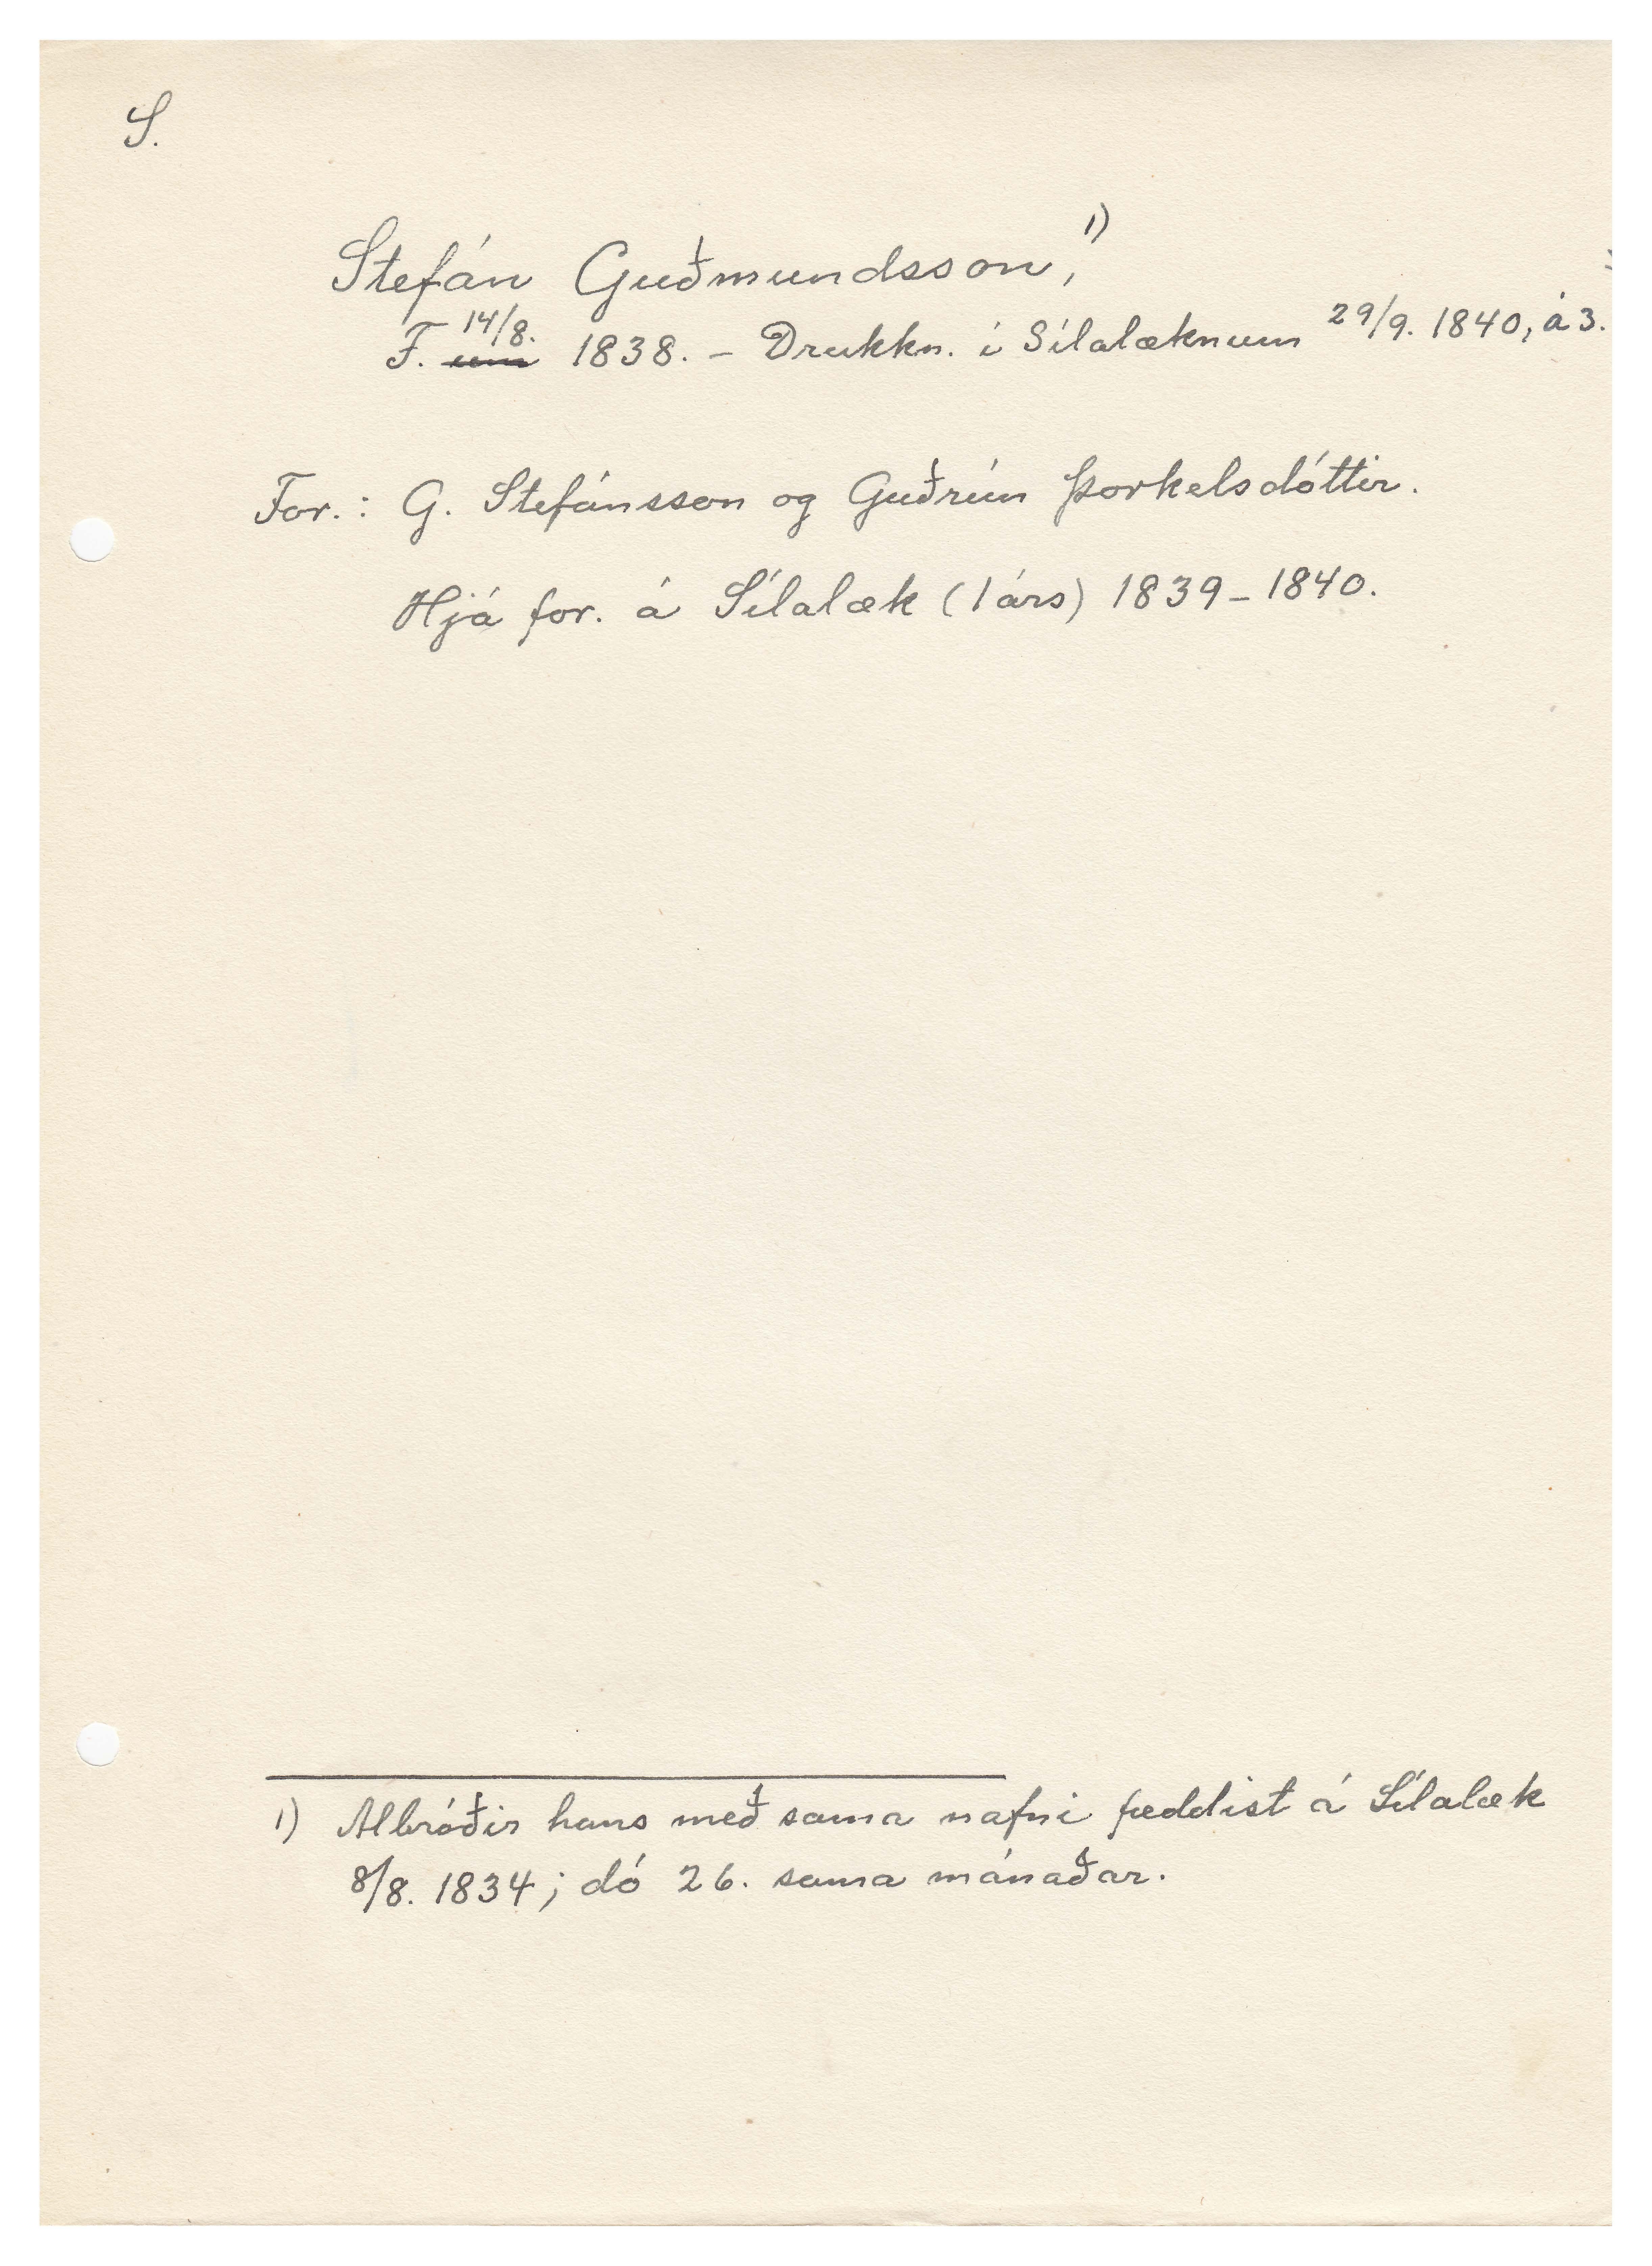 S.
Stefán Guðmundsson, 1)
F. um 14/8. 1838. – Drukkn. í Sílalæknum 29/9. 1840, á 3.
For.: G. Stefánsson og Guðrún Þorkelsdóttir.
Hjá for. á Sílalæk (1 árs) 1839–1840.
1) Albróðir hans með sama nafni fæddist á Sílalæk
8/8. 1834; dó 26. sama mánaðar.